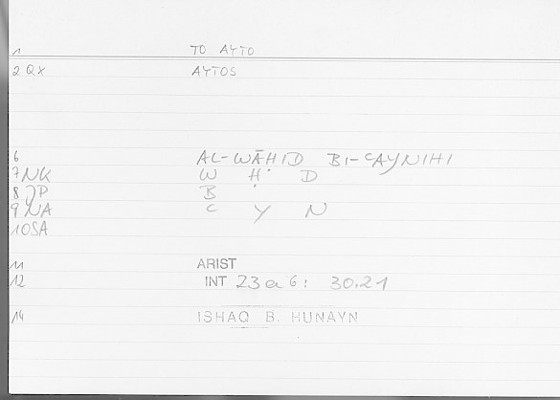 1 TO AYTO
2 QX AYTOS
6 AL-WĀḤID BI-CAYNIHI
7 NK W Ḥ D
8 JP B
9 NA C Y N
10 SA
11 ARIST
12 INT 23a6: 30.21
14 ISHAQ B. HUNAYN